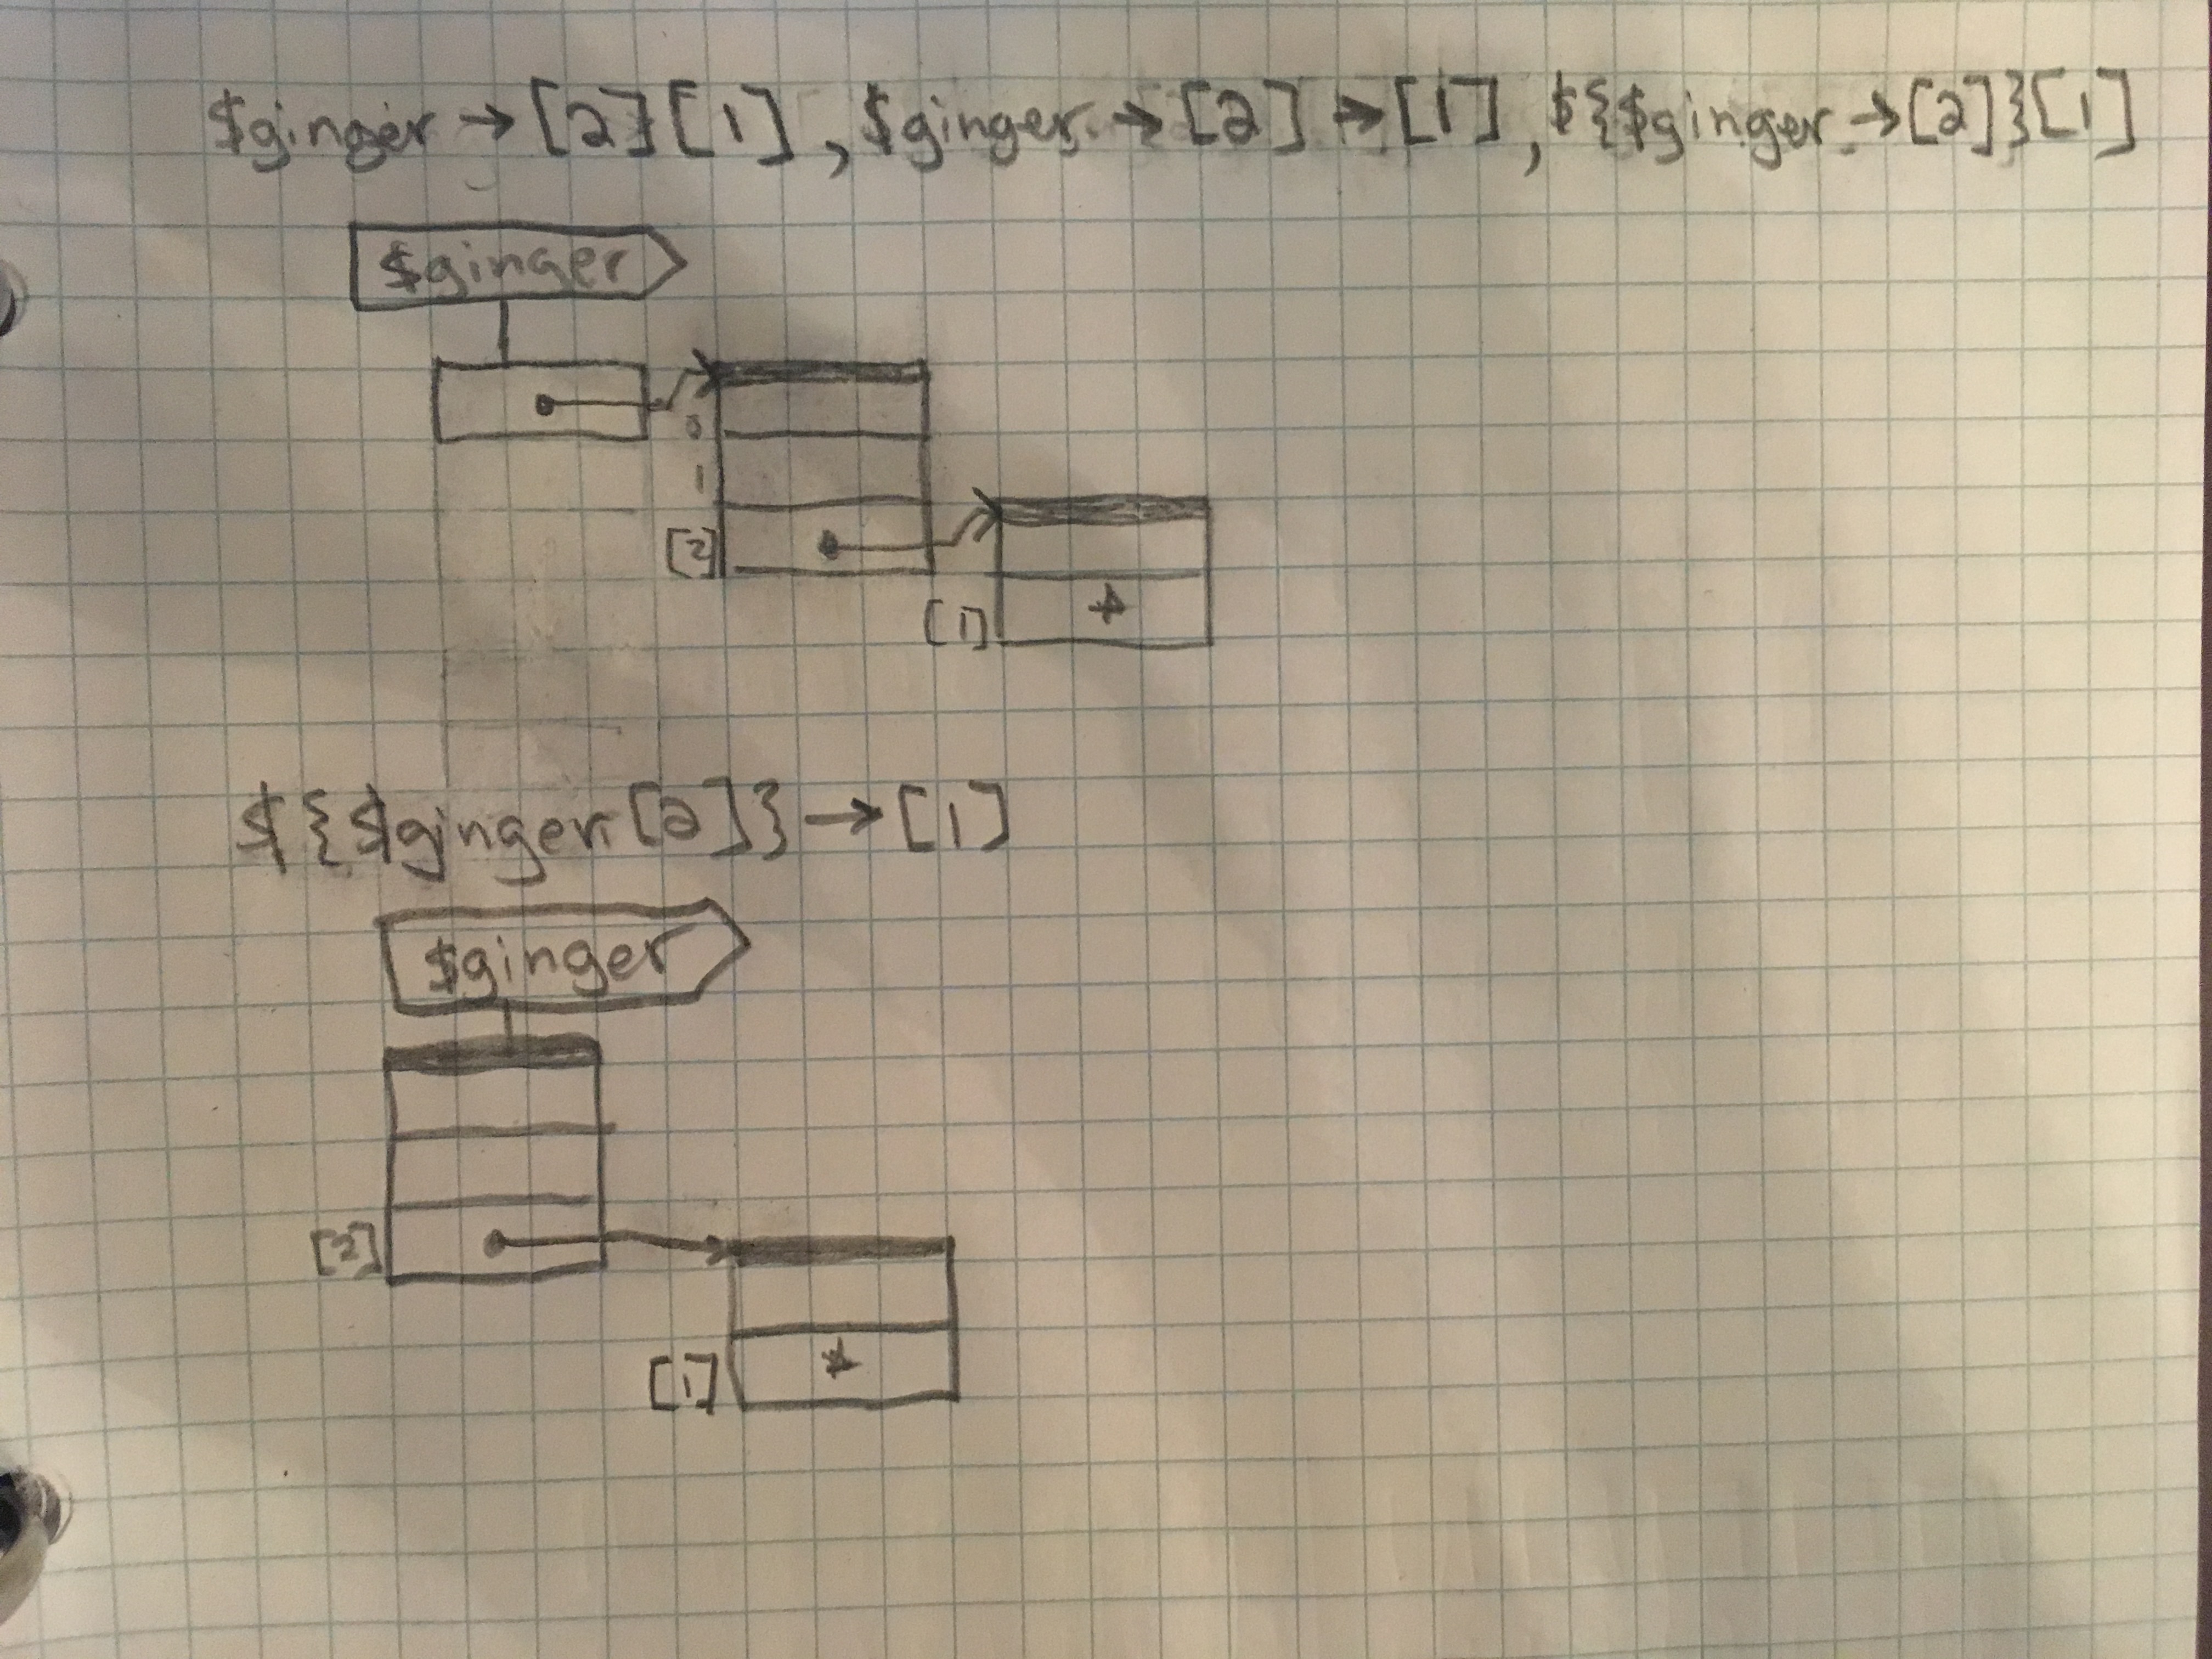 $ginger→[2][1], $ginger→[2]→[1], ${$ginger→[2]}[1]
$ginger
0
1
[2]
[1]
${$ginger[2]}→[1]
$ginger
[2]
[1]